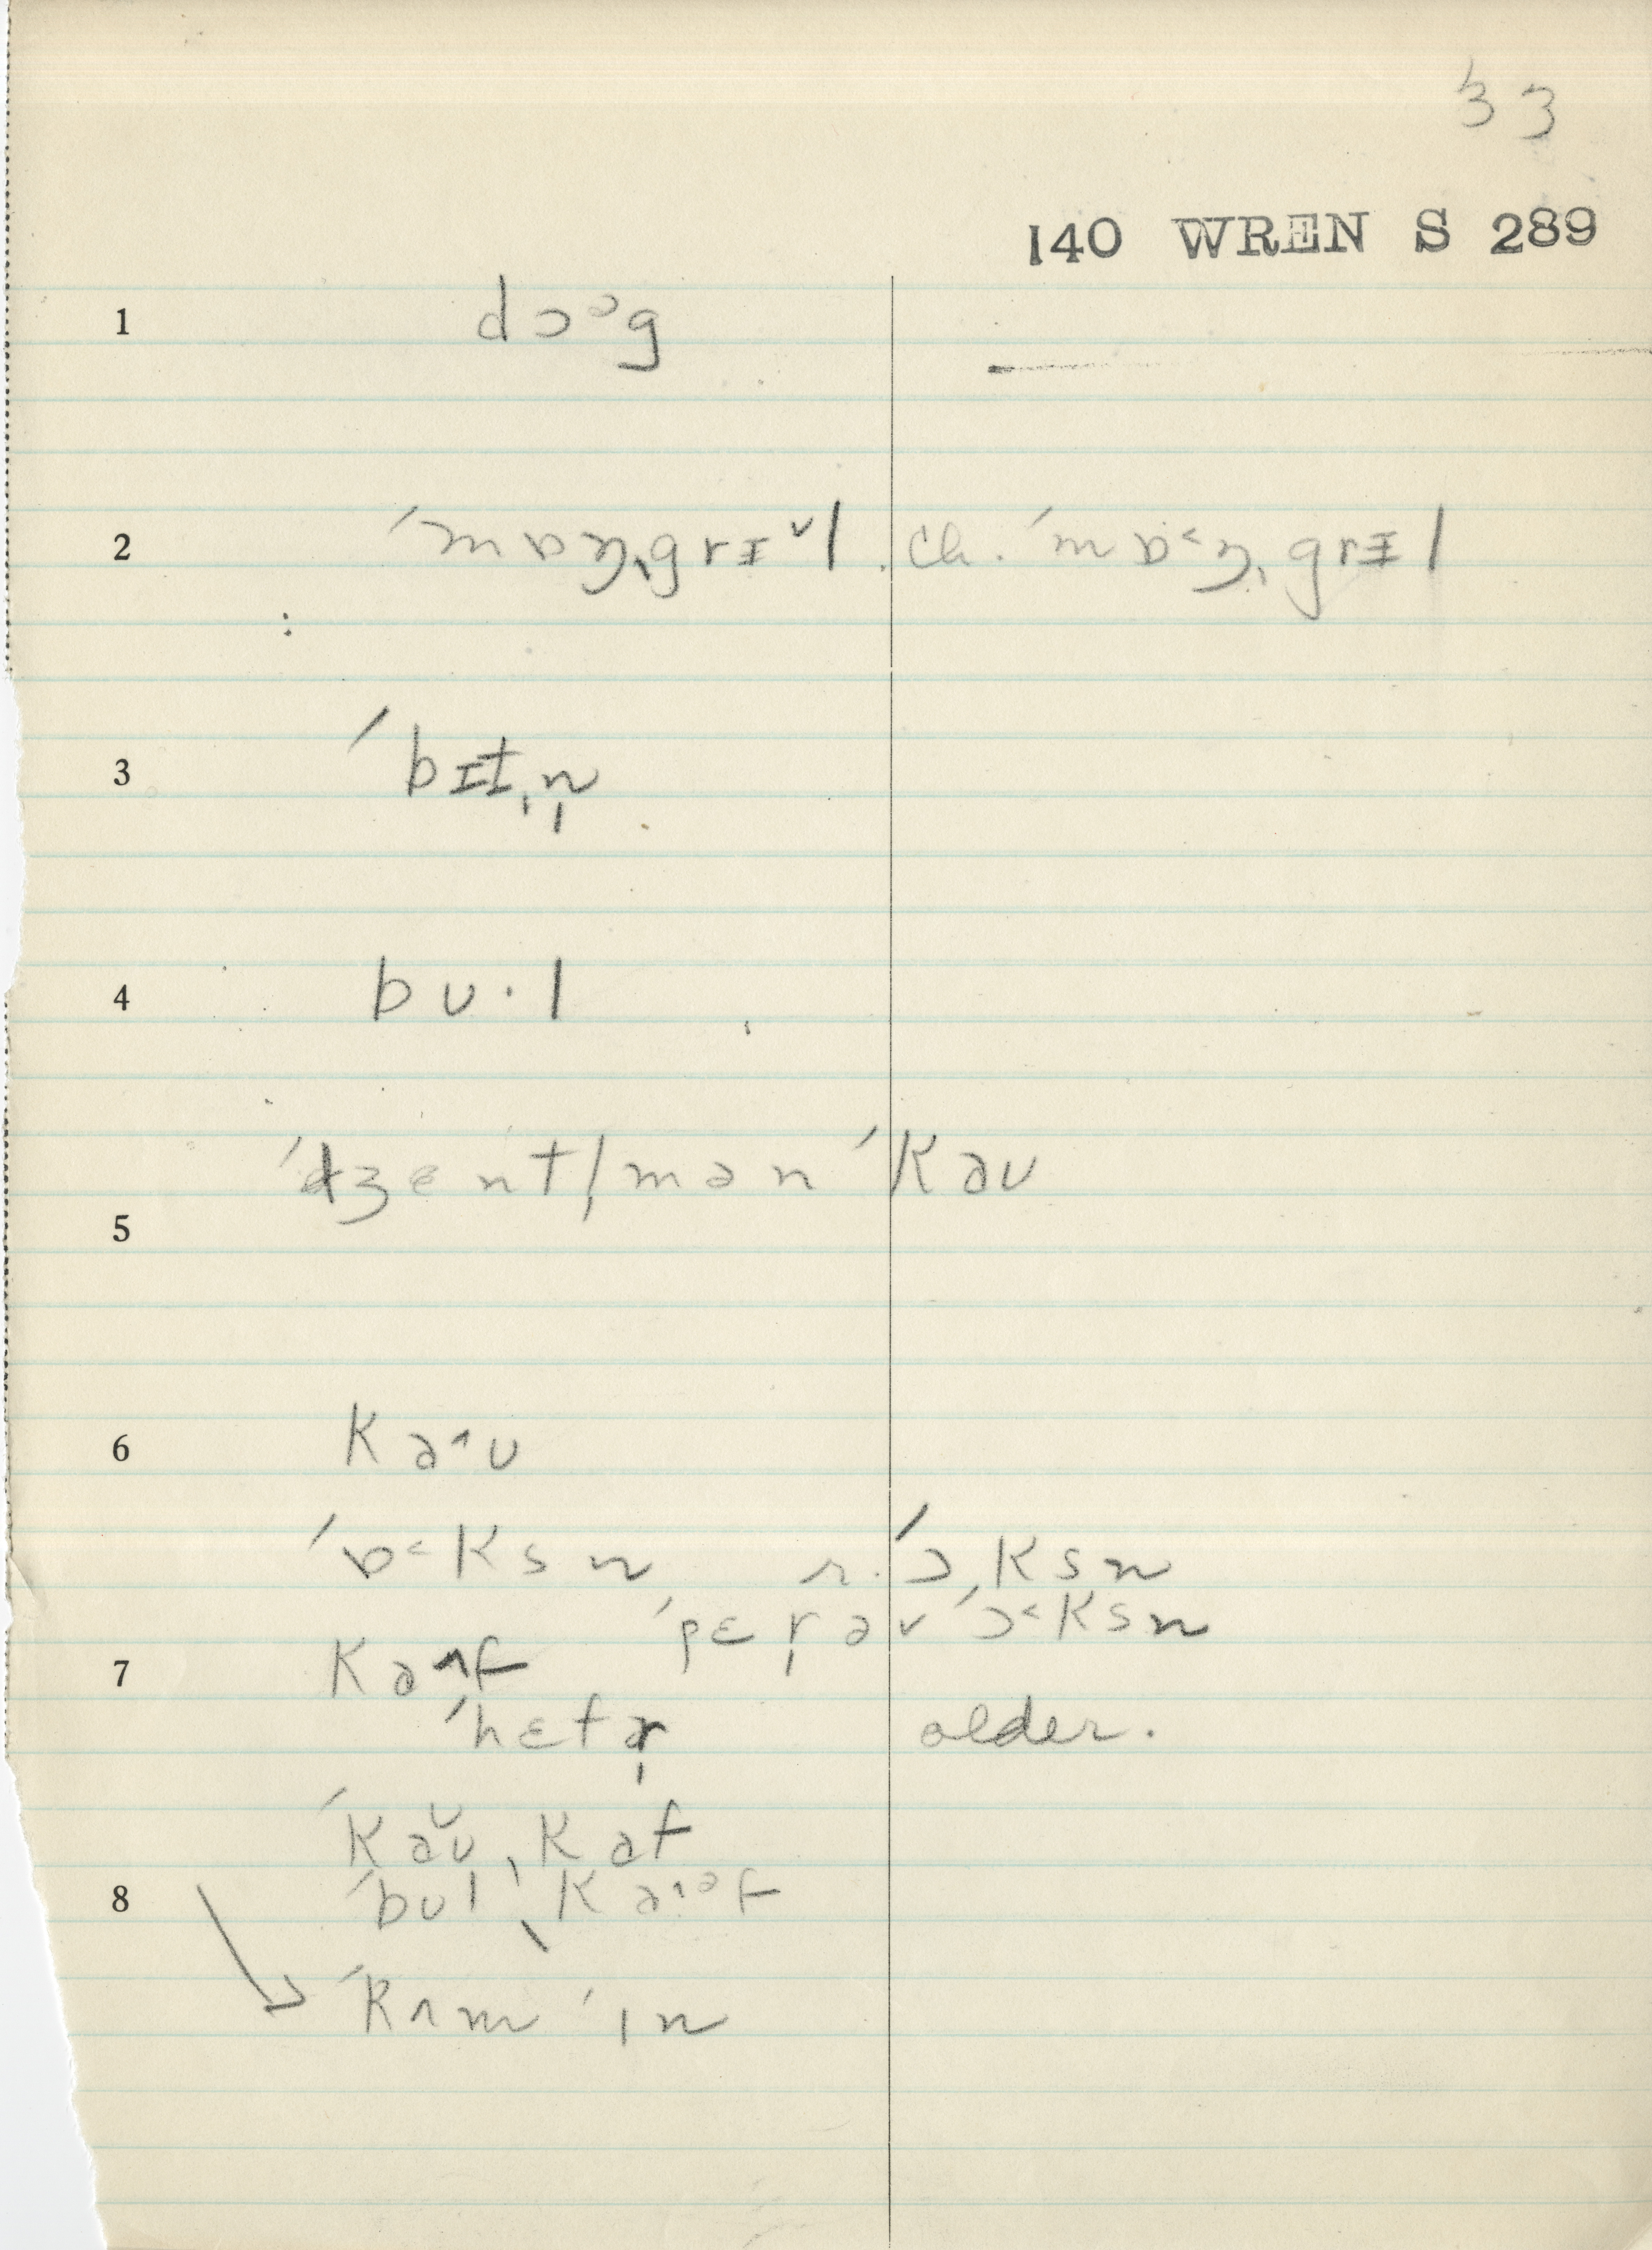 33
140 WREN S 289
1 dɔᵓg
2 ˈmɒŋ̩grɪ˅l. ch. ˈmɒ˂ŋ̩grɪl
3 ˈbɪt̩n̩
4 bʊ·l
5 ˈdʒent l̩mən ˈkəʊ
6 kə˄ʊ
ˈɒ˂ksn r. ˈɔksn
ˈpɛr̩əv ˈɔ˂ksn
7 kə˄f
ˈhɛfər̩ older.
ˈkəʊ̆ˌkəf
8 ˈbʊlˌkə˄ᵊf
ˈkʌm ˈɪn